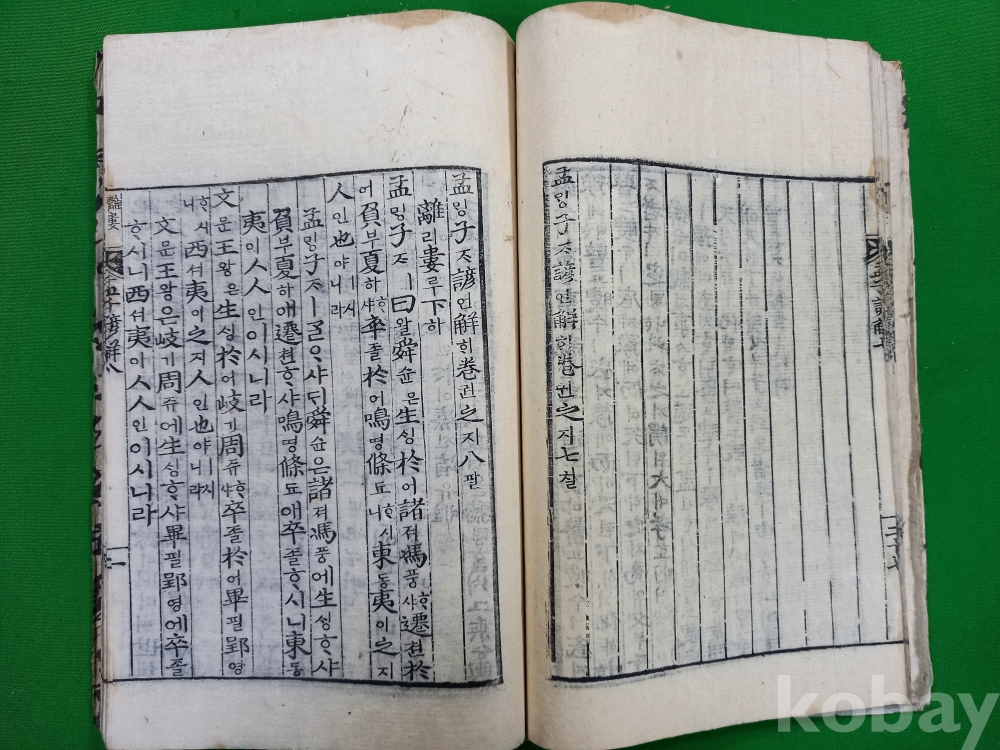 孟ᄆᆡᆼ子ᄌᆞ諺언解ᄒᆡ卷권之지七칠
孟ᄆᆡᆼ子ᄌᆞ諺언解ᄒᆡ卷권之지八팔
離리婁루下하
孟ᄆᆡᆼ子ᄌᆞㅣ曰왈舜슌은生ᄉᆡᆼ於어諸져馮풍ᄒᆞ샤遷쳔於
어負부夏하ᄒᆞ샤卒졸於어鳴명條됴ᄒᆞ시니東동夷이之지
人인也야ㅣ시니라
孟ᄆᆡᆼ子ᄌᆞㅣᄀᆞᆯᄋᆞ샤ᄃᆡ舜슌은諸져馮풍에生ᄉᆡᆼᄒᆞ샤
負부夏하애遷쳔ᄒᆞ샤鳴명條됴애卒졸ᄒᆞ시니東동
夷이ㅅ人인이시니라
文문王왕은生ᄉᆡᆼ於어岐기周쥬ᄒᆞ샤卒졸於어畢필郢영
ᄒᆞ시니西셔夷이之지人인也야ㅣ시니라
文문王왕은岐기周쥬에生ᄉᆡᆼᄒᆞ샤畢필郢영에卒졸
ᄒᆞ시니西셔夷이ㅅ人인이시니라
離婁
kobay